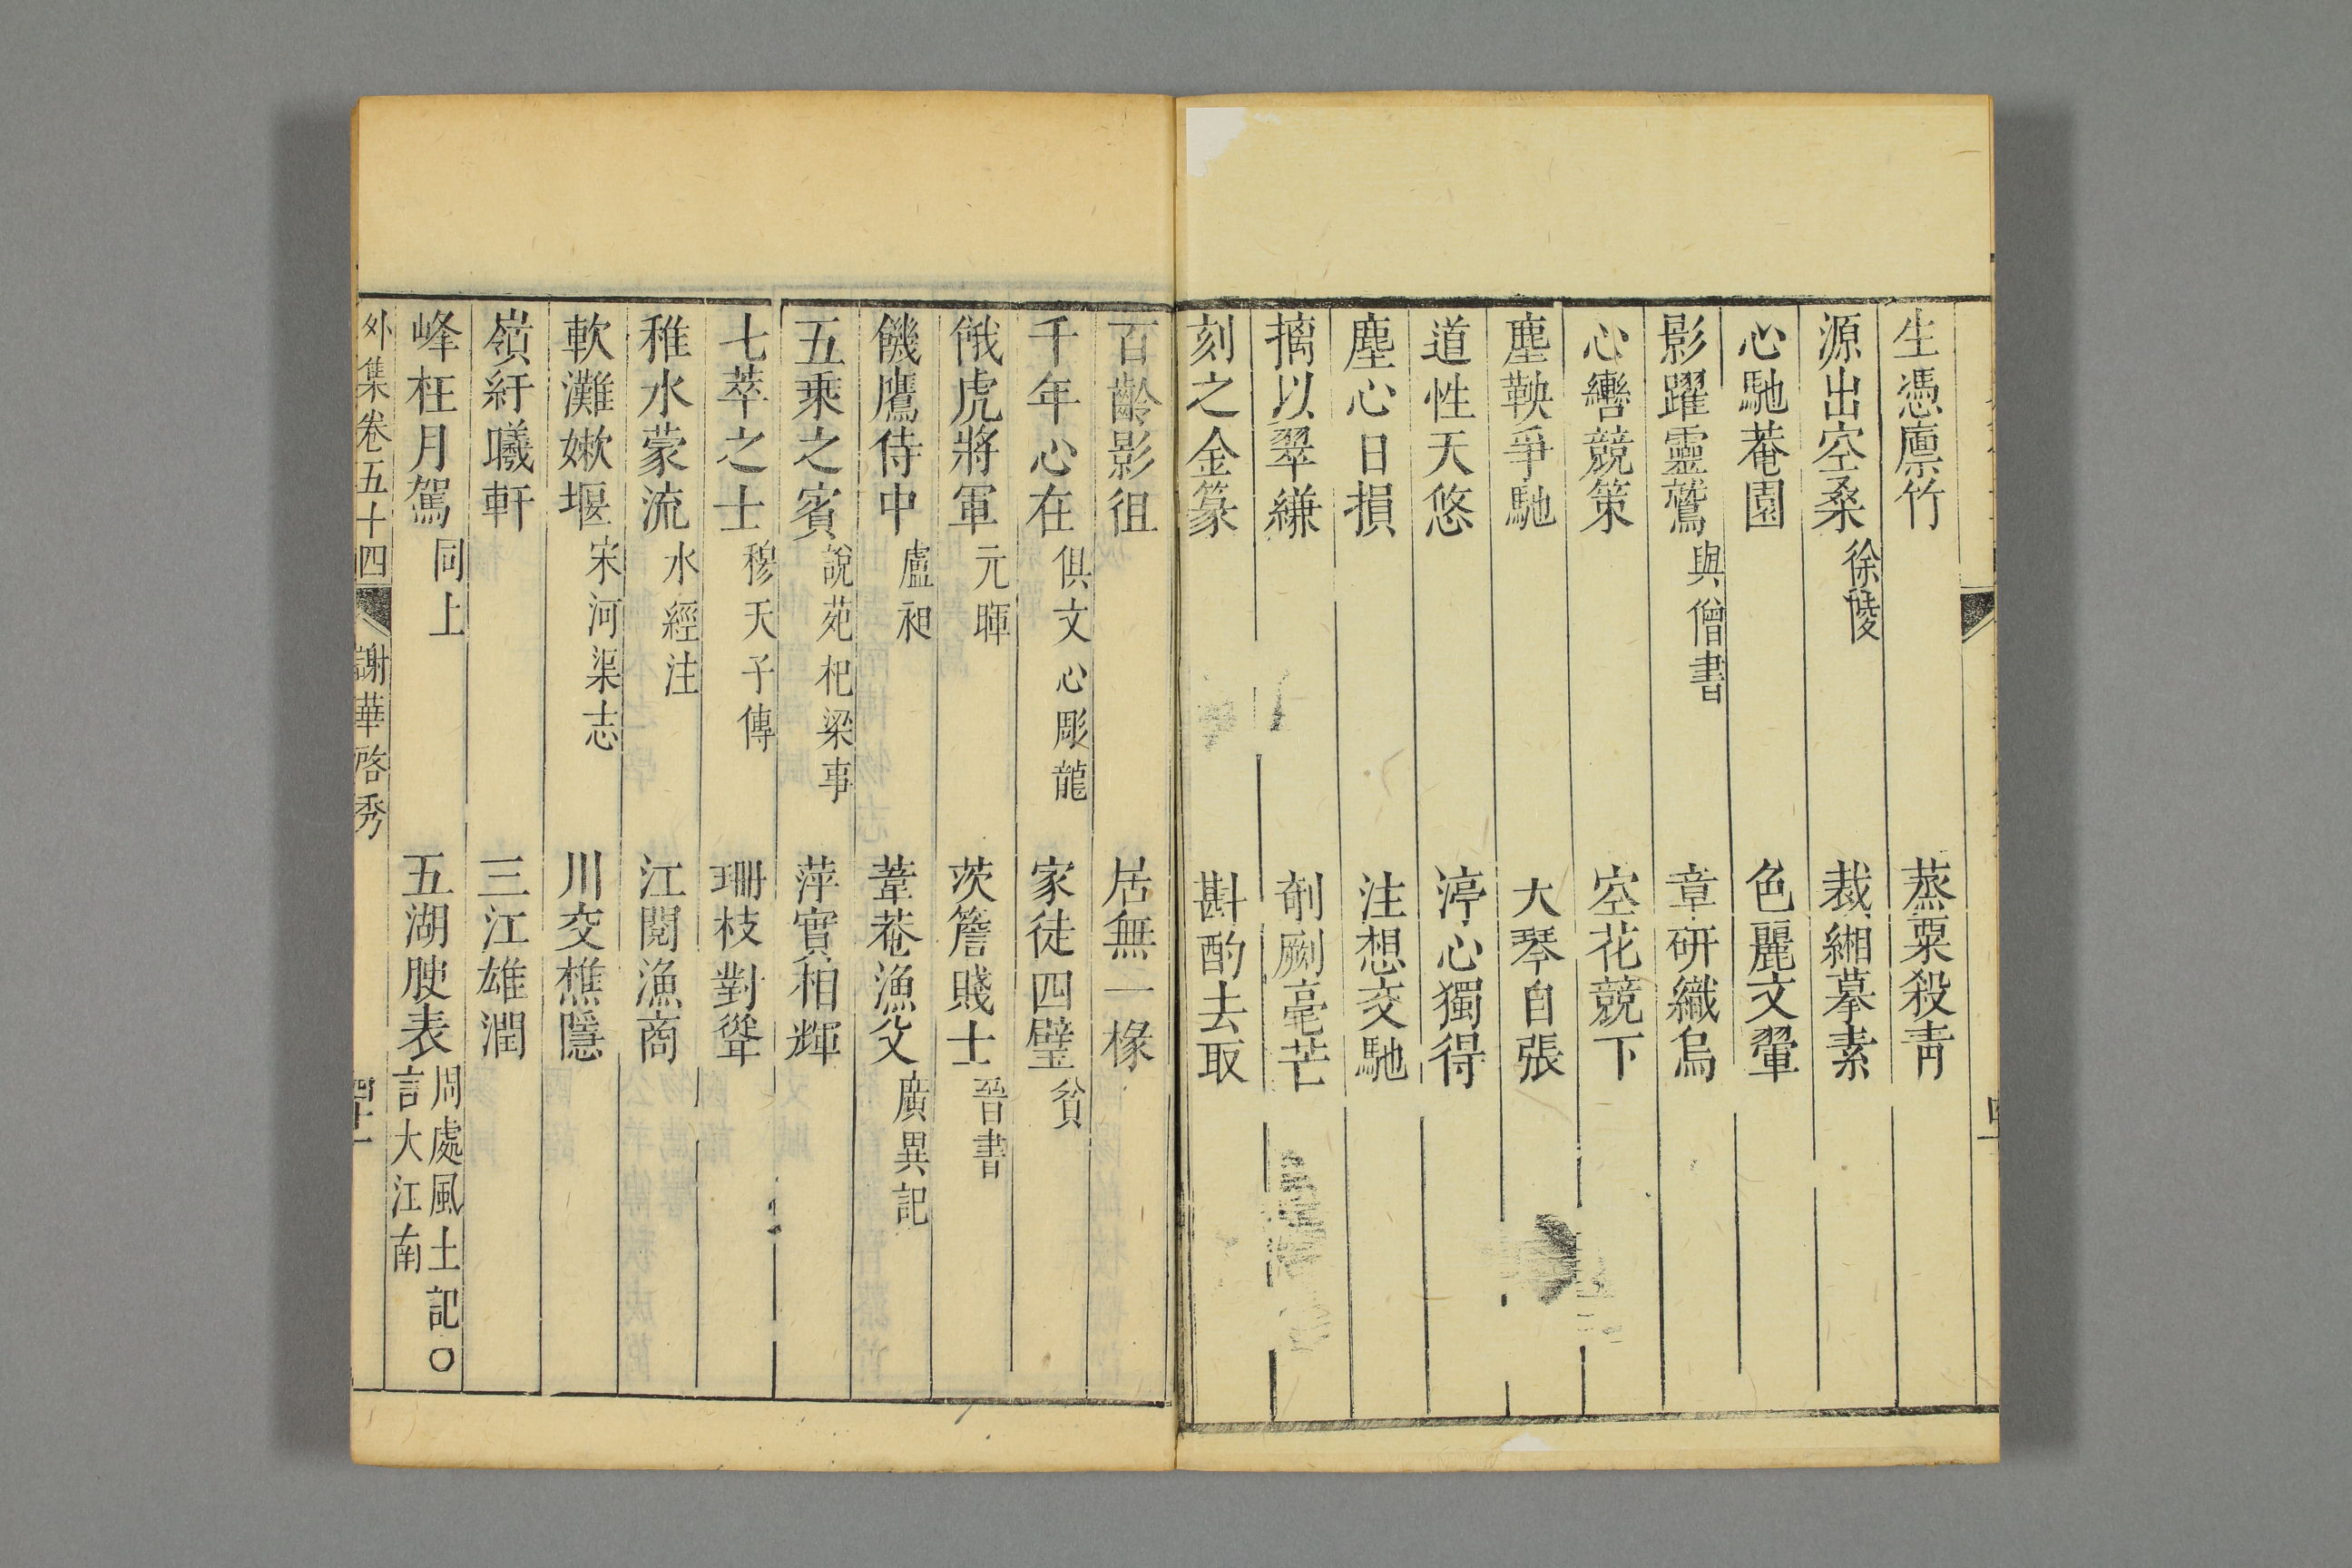 生憑廪竹　蒸粟殺靑
源出空桑徐陵　裁緗摹素
心馳菴園　色麗文翬
影躍靈鷲與僧書　章硏纖烏
心轡競策　空花競下
塵鞅爭馳　大琴自張
道性天悠　渟心獨得
塵心日損　注想交馳
摛以翠縑　剞劂毫芒
刻之金篆　斟酌去取
百齡影徂　居無一椽
千年心在俱文心彫龍　家徒四壁貧
餓虎將軍元暉　茨簷賤士晉書
饑鷹侍中盧昶　葦菴漁父廣異記
五乘之賓說苑杞梁事　萍實相輝
七萃之士穆天子傳　珊枝對聳
稚水蒙流水經注　江閱漁商
軟灘嫰堰宋河渠志　川交樵隱
嶺紆曦軒　三江雄潤
峰枉月駕同上　五湖腴表周處風土記○言大江南
外集卷五十四　謝華啓秀